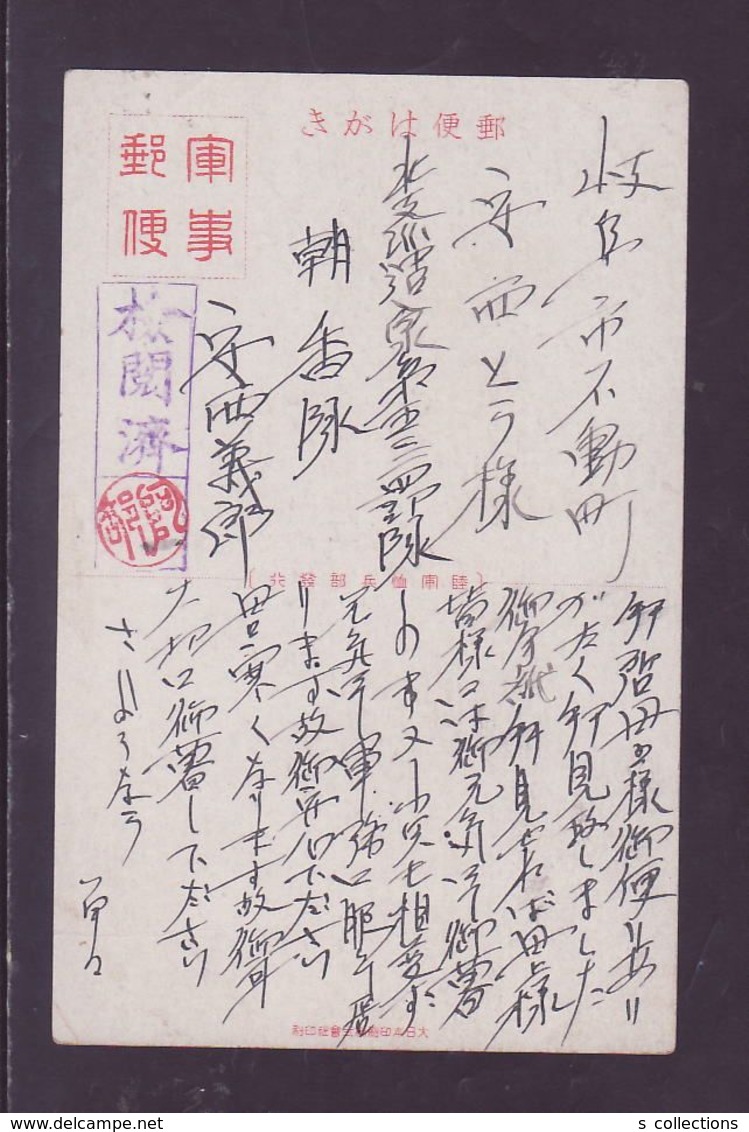 郵便はがき
軍事
郵便
検閲済
岐阜市不動町
安西とう様
北支派遣泉第五三四部隊
朝香隊
安西義郎
(陸軍恤兵部發行)
拝啓母上様御便りあり
がたく拝見致しました
御手紙拝見すれば母上様
皆様には御元気にて御暮
しの事又小父も相変ず
元気にて軍務に服し居
ります故御安心下ださい
毎日寒くなります故御身
大切に御暮し下ださい
さようなら
大日本印刷株式會社印刷
s collections